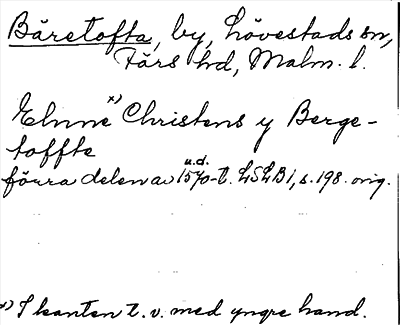 Bäretofta, by, Lövestads sn,
Färs hd, Malm. l.
Elnne x) Christens y Berge-
toffte
förra delen av 1570-t. u.d. LSLB 1, s. 198. orig.
x) I kanten t. v. med yngre hand.